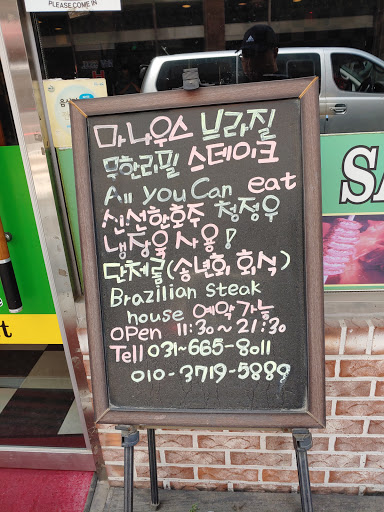 PLEASE COME IN
마나우스 브라질
무한리필 스테이크
All you Can eat
신선한호주 청정우
냉장육 사용!
단체룸(송년회 회식)
Brazilian steak
house 예약가능
OPen 11:30~21:30
Tell 031-665-8011
010-3719-5889
SA